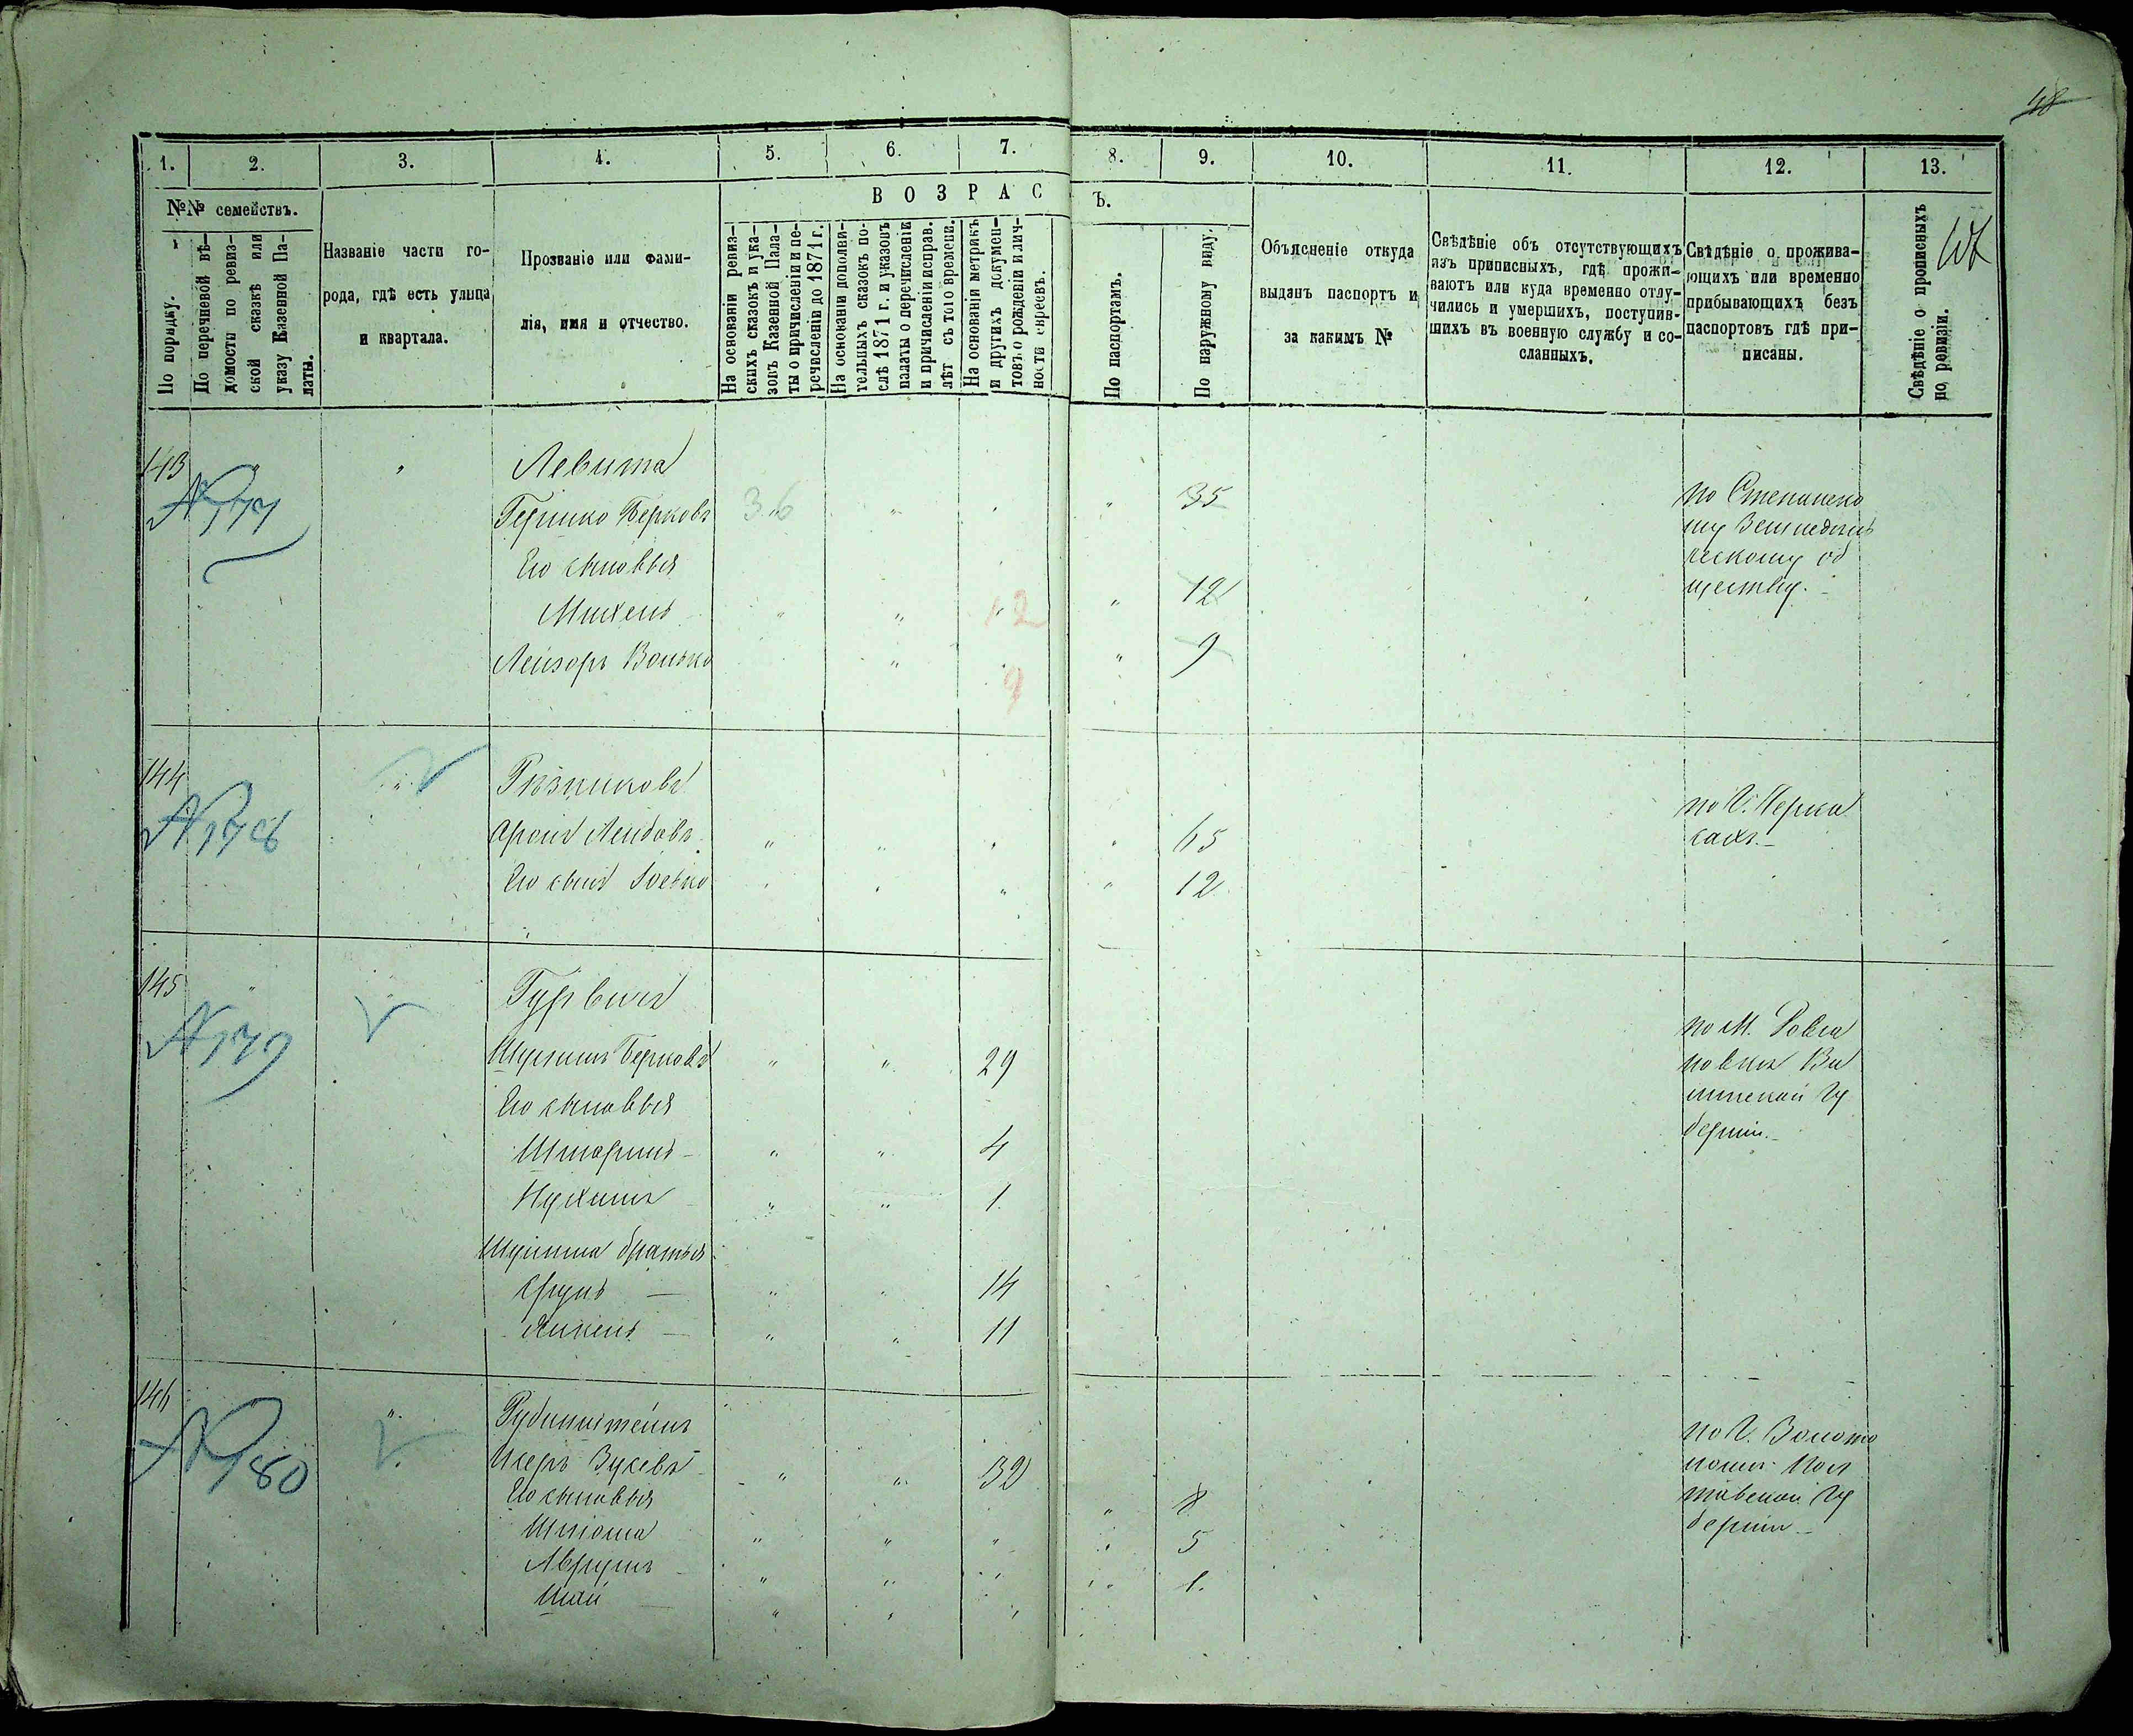 48
1. 2. 3. 4. 5. 6. 7. 8. 9. 10. 11. 12. 13.
№№ семействъ.
По порядку.
По перечневой вѣ-
домости по ревиз-
ской сказкѣ или
указу Казенной Па-
латы.
Названіе части го-
рода, гдѣ есть улица
и квартала.
Прозваніе или фами-
лія, имя и отчество.
ВОЗРАС Ъ.
На основаніи ревиз-
скихъ сказокъ и ука-
зовъ Казенной Пала-
ты о причисленіи и пе-
речасленіи до 1871 г.
На основаніи дополни-
тельныхъ сказокъ по-
слѣ 1871 г. и указовъ
палаты о перечисленіи
и причисленіи исправ.
лѣт съ того времени.
На основаніи метрикъ
и другихъ докумен-
товъ о рожденіи и лич-
ности евреевъ.
По паспортамъ.
По наружному виду.
Объясненіе откуда
выданъ паспортъ и
за какимъ №
Свѣдѣніе объ отсутствующихъ
изъ приписныхъ, гдѣ прожи-
ваютъ или куда временно отлу-
чились и умершихъ, поступив-
шихъ въ военную службу и со-
сланныхъ.
Свѣдѣніе о прожива-
ющихъ или временно
прибывающихъ безъ
паспортовъ гдѣ при-
писаны.
Свѣдѣніе о прописныхъ
по ревизіи.
143 " " Левита
№ 177
Гершко Берковъ 36 " " " 35 по Степанско
му Земледѣль
ческому об
ществу.
Его сыновья
Михель " " 12 " 12
Лейзоръ Волько " 9 " 9
144 " Рѣзниковъ
№ 178
Аронъ Лейбовъ " " " " 65 по Г. Черка
сахъ.
Его сынъ Іосько " " " " 12
145 " " Гурвичъ
№ 179
Шулимъ Берковъ " " 29 по М.
Ви
ленской Гу
берніи.
Его сыновья
" " 4
Нухимъ " " 1.
Шулима братья
Срулъ " " 14
Янкель " " 11
146 " Рубинштейнъ
№ 180
Зуселъ " " 32 по Г. Золото
ноши Пол
тавской Гу
берніи
Его сыновья
Шлюма " " " " 8
Аврумъ " " " " 5
" " " " 1.